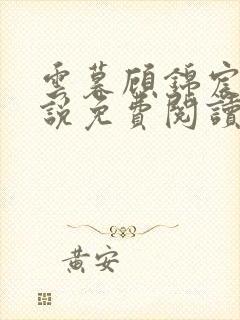 雲暮顧錦宸
說免費閱讀
黃安